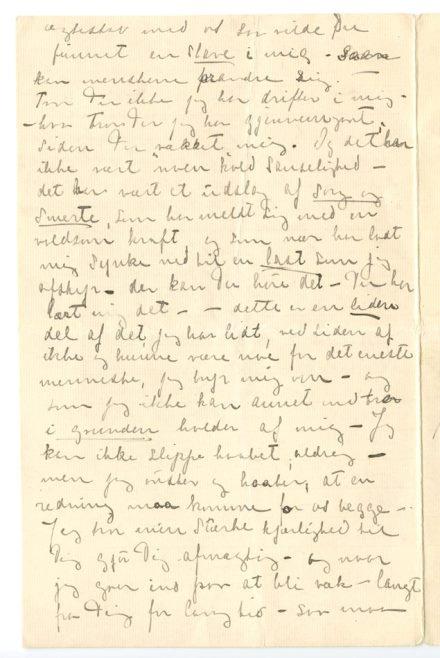 ægteskab med os saa vilde Du
funnet en slave i mig - Saa
kan menskene forandre sig. -
Tror Du ikke jeg har drifter i mig -
- hva tror Du jeg har gjennemgaaet,
siden Du vakket mig. Og det har
ikke vært "noen kold Sanselighed -
det har vært et udslag af Sorg og
Smerte, som har meldt sig med en
voldsom kraft, og som nær har ladt
mig synke ned til en last som jeg
afskyr - der kan Du høre det - Du har
lært mig det - - dette er en liden
del af det jeg har lidt, ved siden af
ikke og kunne være noe for det eneste
menneske, jeg bryr mig om - og
som jeg ikke kan annet end tro
i grunden holder af mig - Jeg
kan ikke slippe haabet, aldrig -
men jeg ønsker og haaber, at en
redning maa komme for os begge -
Jeg tror min stærke kjærlighed til
Dig gjør Dig afmægtig - og naar
jeg gaar ind paa at bli væk - langt
fra Dig for lang tid - saa maa